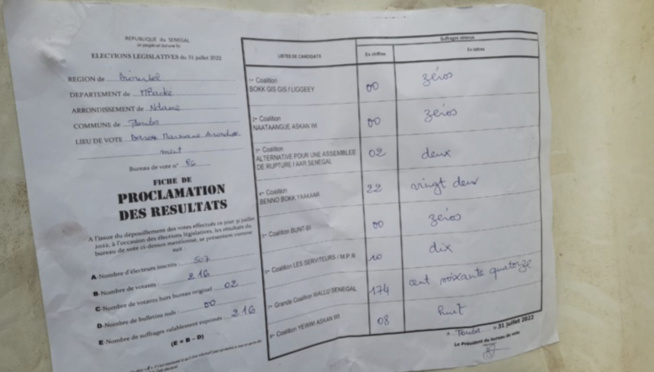 REPUBLIQUE DU SENEGAL
ELECTIONS LEGISLATIVES du 31 juillet 2022
REGION de Diourbel
DEPARTEMENT de Mbacké
ARRONDISSEMENT de Ndame
COMMUNE de Touba
LIEU DE VOTE
Bureau de vote n°
FICHE DE
PROCLAMATION
DES RESULTATS
A l'issue du dépouillement des votes effectués ce jour 31 juillet
2022, à l'occasion des élections législatives, les résultats du
bureau de vote ci-dessus mentionné, se présentent comme
suit :
A- Nombre d'électeurs inscrits 507
B- Nombre de votants : 216
C- Nombre de votants hors bureau originel 02
D- Nombre de bulletins nuls : 00
E- Nombre de suffrages valablement exprimés : 216
(E = B - D)
LISTES DE CANDIDATS
Suffrages obtenus
En chiffres
En lettres
Coalition
BOKK GIS GIS / LIGGEEY
00
zéros
Coalition
NAATAANGUE ASKAN WI
00
zéros
Coalition
ALTERNATIVE POUR UNE ASSEMBLEE
DE RUPTURE / AAR SENEGAL
02
deux
Coalition
BENNO BOKK YAAKAAR
22
vingt deux
Coalition BUNT-BI
00
zéros
Coalition LES SERVITEURS / M.P.R
10
dix
Grande Coalition WALLU SENEGAL
174
cent soixante quatorze
Coalition YEWWI ASKAN WI
08
huit
A Touba le 31 juillet 2022
Le Président du bureau de vote